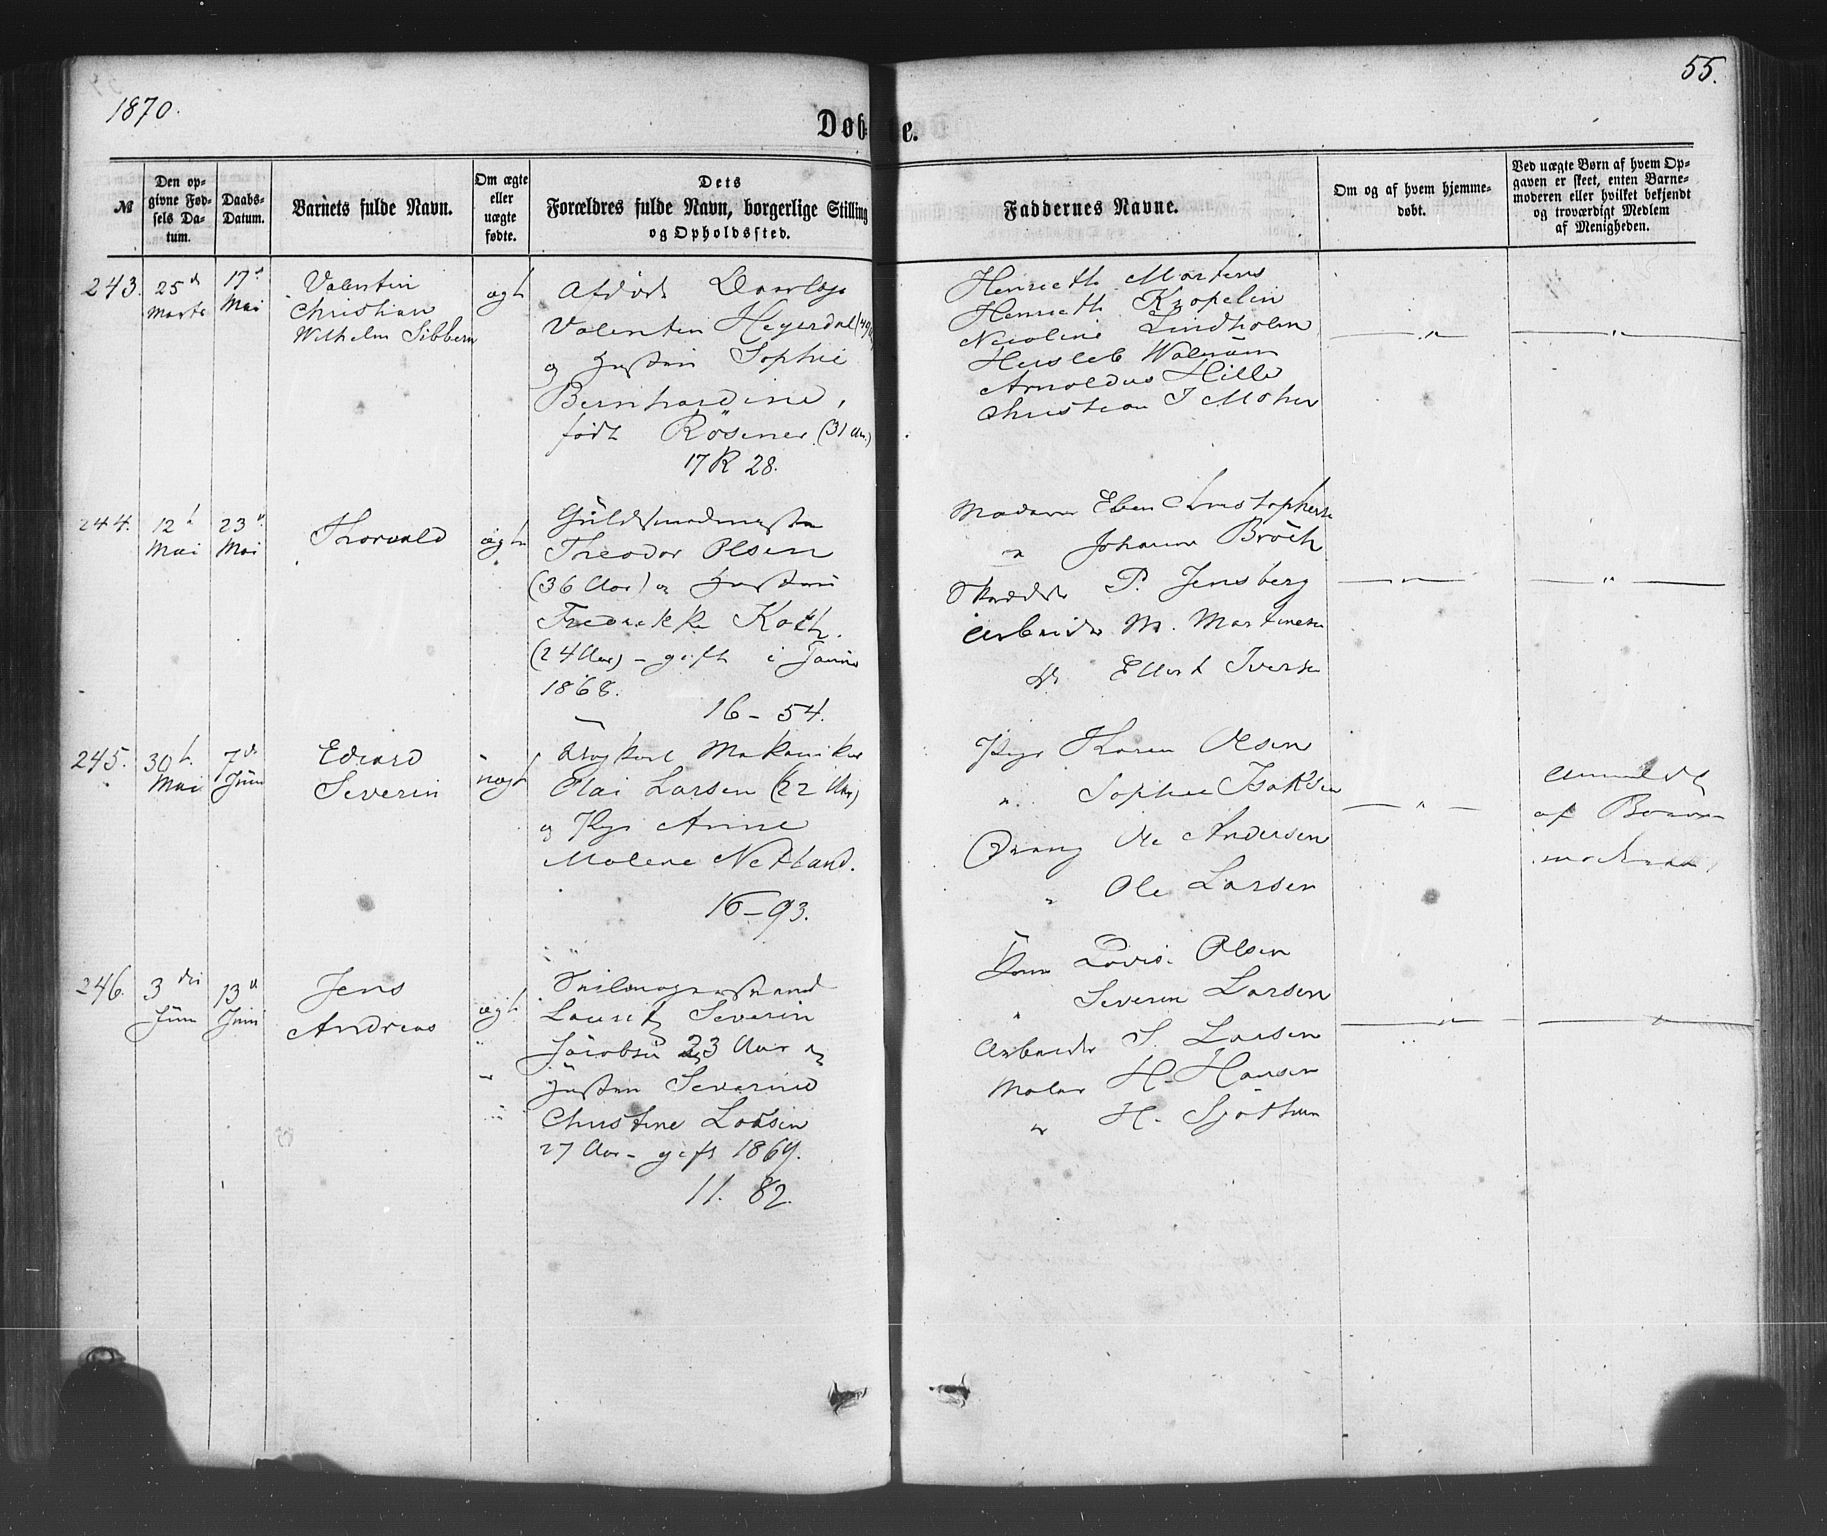 1870.
55.
Døbte.
№
Den opgivne Fødsels Datum.
Daabs-Datum.
Barnets fulde Navn.
Om ægte eller uægte fødte.
Dets Forældres fulde Navn, borgerlige Stilling og Opholdssted.
Faddernes Navne.
Om og af hvem hjemmedøbt.
Ved uægte Børn af hvem Opgaven er skeet, enten Barnemoderen eller hvilket bekjendt og troværdigt Medlem af Menigheden.
243.
25de Marts
17de Mai
Valentin
Christian
Wilhelm Sibbern
ægte
Afdøde
Valentin Heyerdal
og Hustru Sophie
Bernhardine,
født Rösener (31 Aar)
17 R 28.
Henrieth Martens
Henrieth Kröpelin
Nicoline Lindholm
Hersleb Walnum
Arnoldus Hille
Christian J Mohr
— " —
— " —
244.
12te Mai
23de Mai
Thorvald
ægte
Guldsmedmester
Theodor Olsen
(36 Aar) og Hustru
Fredrikke Koch.
(24 Aar) - gift i
1868.
16 - 54.
Madame Christophersen
" Johanne Broch
P. Jensberg
Arbeider M. Martinsen
do Ellert Iversen
— " —
— " —
245.
30te Mai
7de Juni
Edvard
Severin
uægte
Ungkarl Mekaniker
Olai Larsen (22 Aar)
og Pige Anne
Malene Netland.
16 - 93.
Pige Karen Olsen
" Sophie Isaksen
Dreng Ole Andersen
" Ole Larsen
— " —
Anmeldt
af Barne-
moderen
246.
3die Juni
13de Juni
Jens
Andreas
ægte
Seilmagersvend
Laurits Severin
Jacobsen 23 Aar og
Hustru Severine
Christine Larsen
27 Aar - gift 1869.
11. 82.
Kone Lovise Olsen
" Severin Larsen
Arbeider S. Larsen
Maler H. Hansen
" H. Sjøthun
— " —
— " —